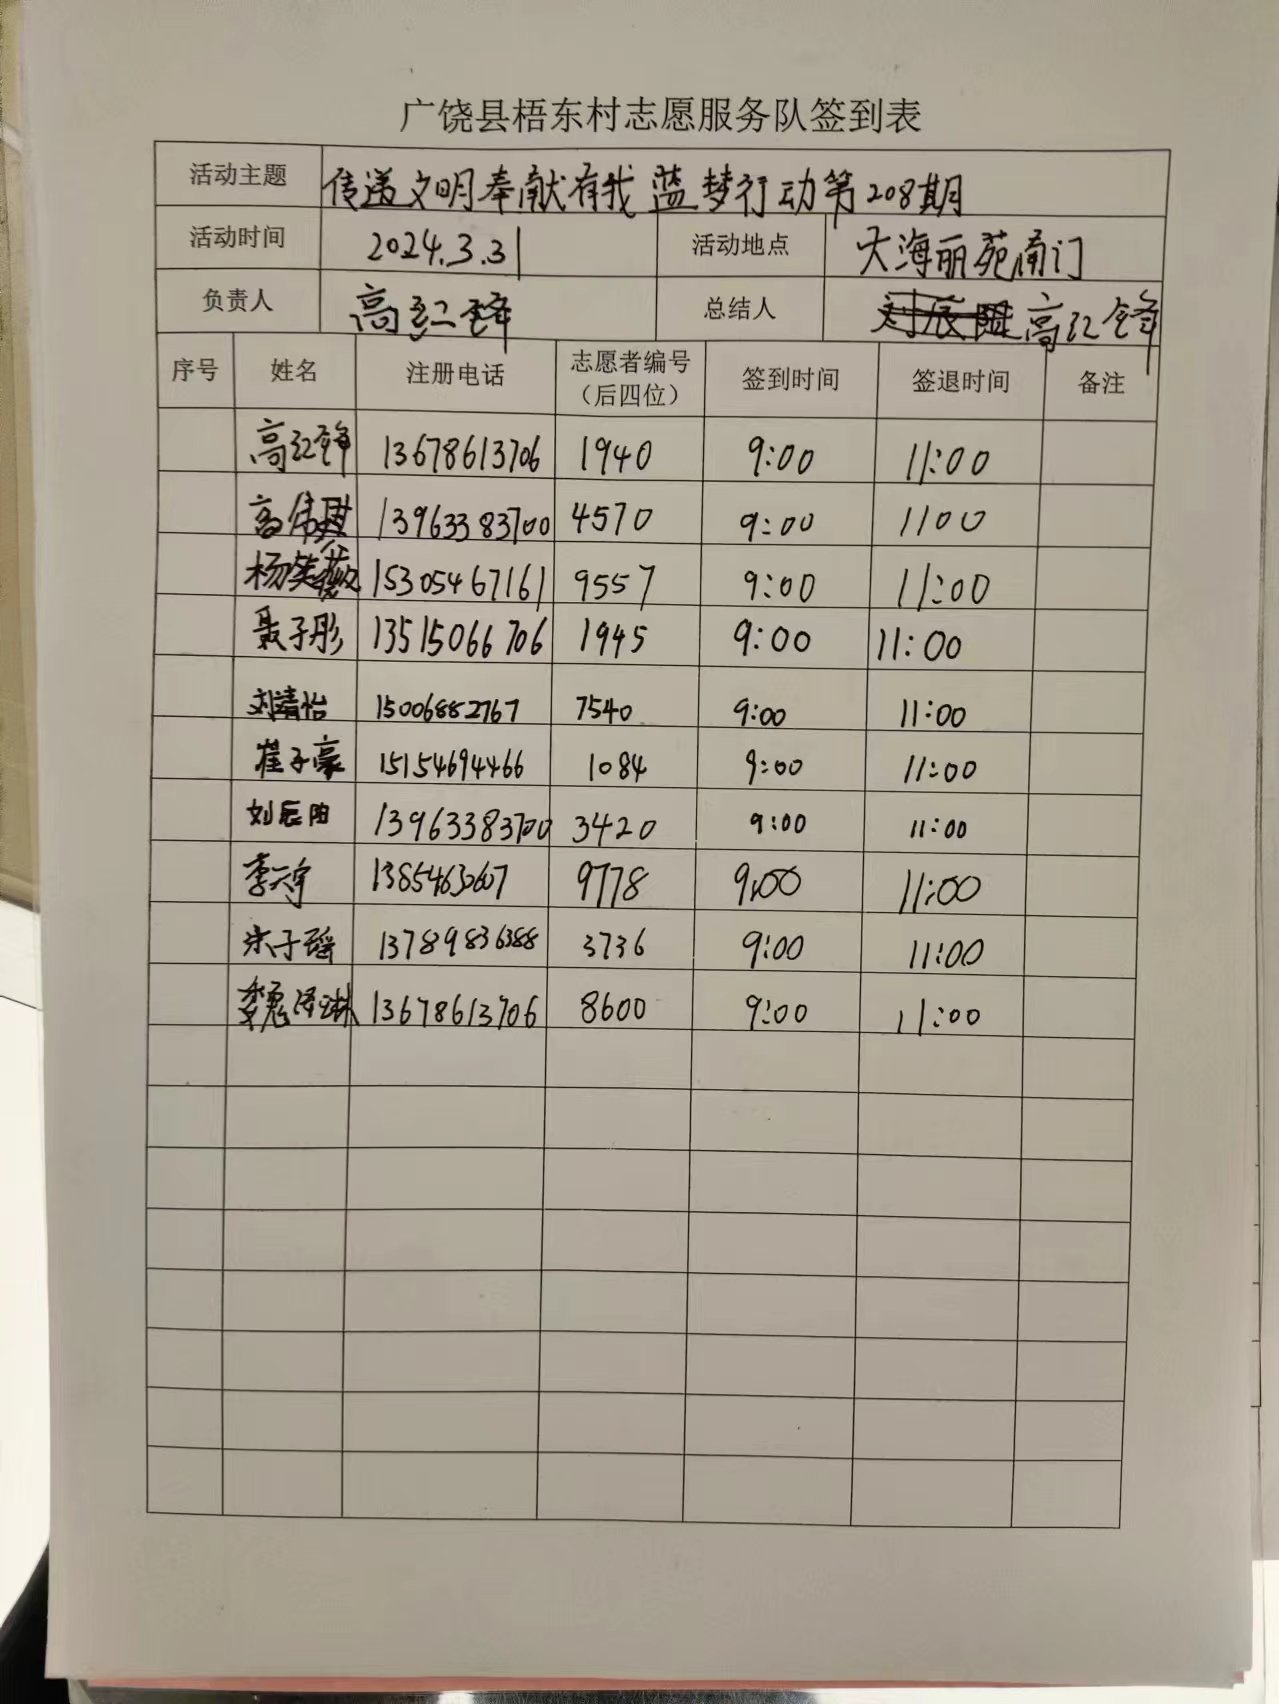 广饶县梧东村志愿服务队签到表
活动主题 传递文明奉献有我 蓝梦行动第208期
活动时间 2024.3.31 活动地点 大海丽苑南门
负责人 高红锋 总结人 刘辰阳 高红锋
序号 姓名 注册电话 志愿者编号（后四位） 签到时间 签退时间 备注
高红锋 13678613706 1940 9:00 11:00
高伟琪 13963383700 4570 9:00 1100
杨笑薇 15305467161 9557 9:00 11:00
聂子彤 13515066706 1945 9:00 11:00
刘靖怡 15006882767 7540 9:00 11:00
崔子豪 15154694466 1084 9:00 11:00
刘辰阳 13963383700 3420 9:00 11:00
李天宇 13854630607 9778 9:00 11:00
宋子瑶 13789836388 3736 9:00 11:00
魏泽琳 13678613706 8600 9:00 11:00